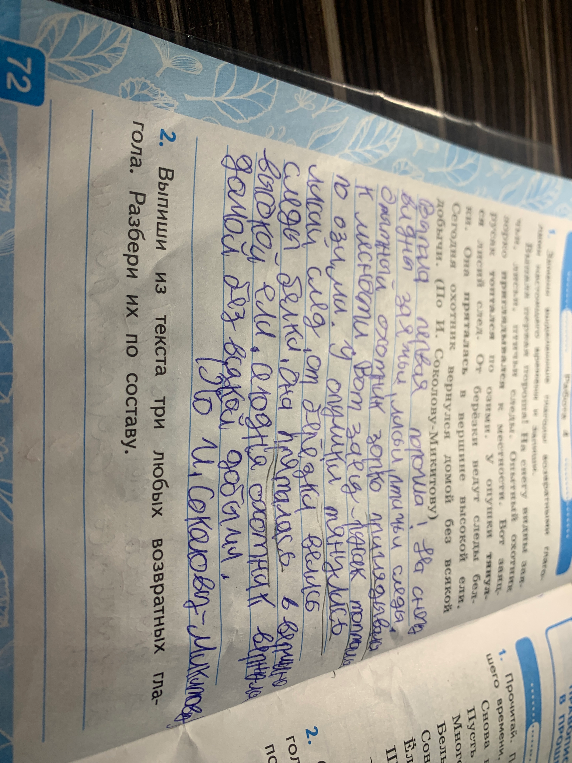 Работа 4
1. Замени выделенные глаголы возвратными глаго-
лами настоящего времени и запиши.
Выпала первая пороша! На снегу видны зая-
чьи, лисьи, птичьи следы. Опытный охотник
зорко приглядывался к местности. Вот заяц-
русак топтался по озими. У опушки тянул-
ся лисий след. От берёзки ведут следы бел-
ки. Она пряталась в вершине высокой ели.
Сегодня охотник вернулся домой без всякой
добычи. (По И. Соколову-Микитову)
Выпала первая пороша! На снегу
видны заячьи лисьи птичьи следы.
Опытный охотник зорко приглядывался
к местности. Вот заяц-русак топтался
по озими. У опушки тянулись
лисий след, от берёзки велись
следы белки. Она пряталась в вершине
высокой ели. Сегодня охотник вернулся
домой без всякой добычи.
(По И. Соколову-Микитову)
2. Выпиши из текста три любых возвратных гла-
гола. Разбери их по составу.
72
1. Прочитай.
шего времени.
Снова
Пусть
Много
2.
гол
по